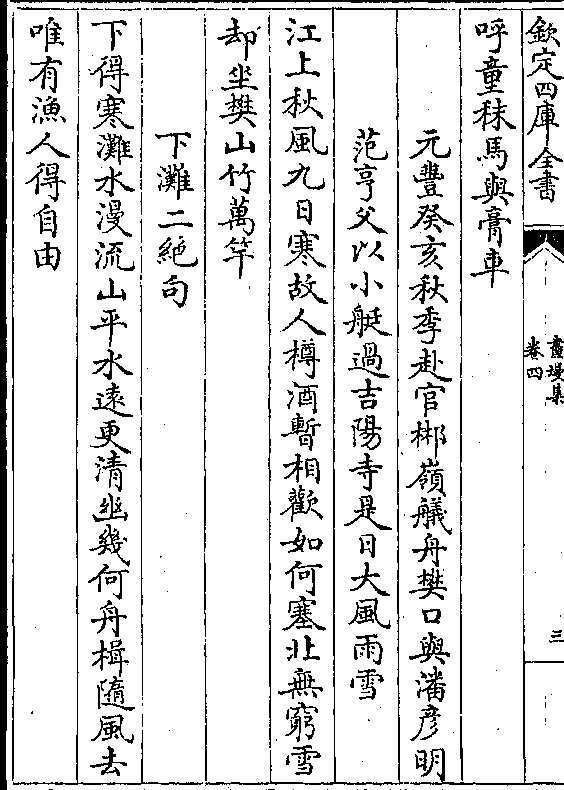 欽定四庫全書
畫墁集
卷四
三
呼童秣馬與膏車
元豐癸亥秋季赴官郴嶺艤舟樊口與潘彦明
范亨父以小艇過吉陽寺是日大風雨雪
江上秋風九日寒故人樽酒暫相歡如何塞北無窮雪
却坐樊山竹萬竿
下灘二絶句
下得寒灘水漫流山平水逺更清幽幾何舟楫隨風去
唯有漁人得自由